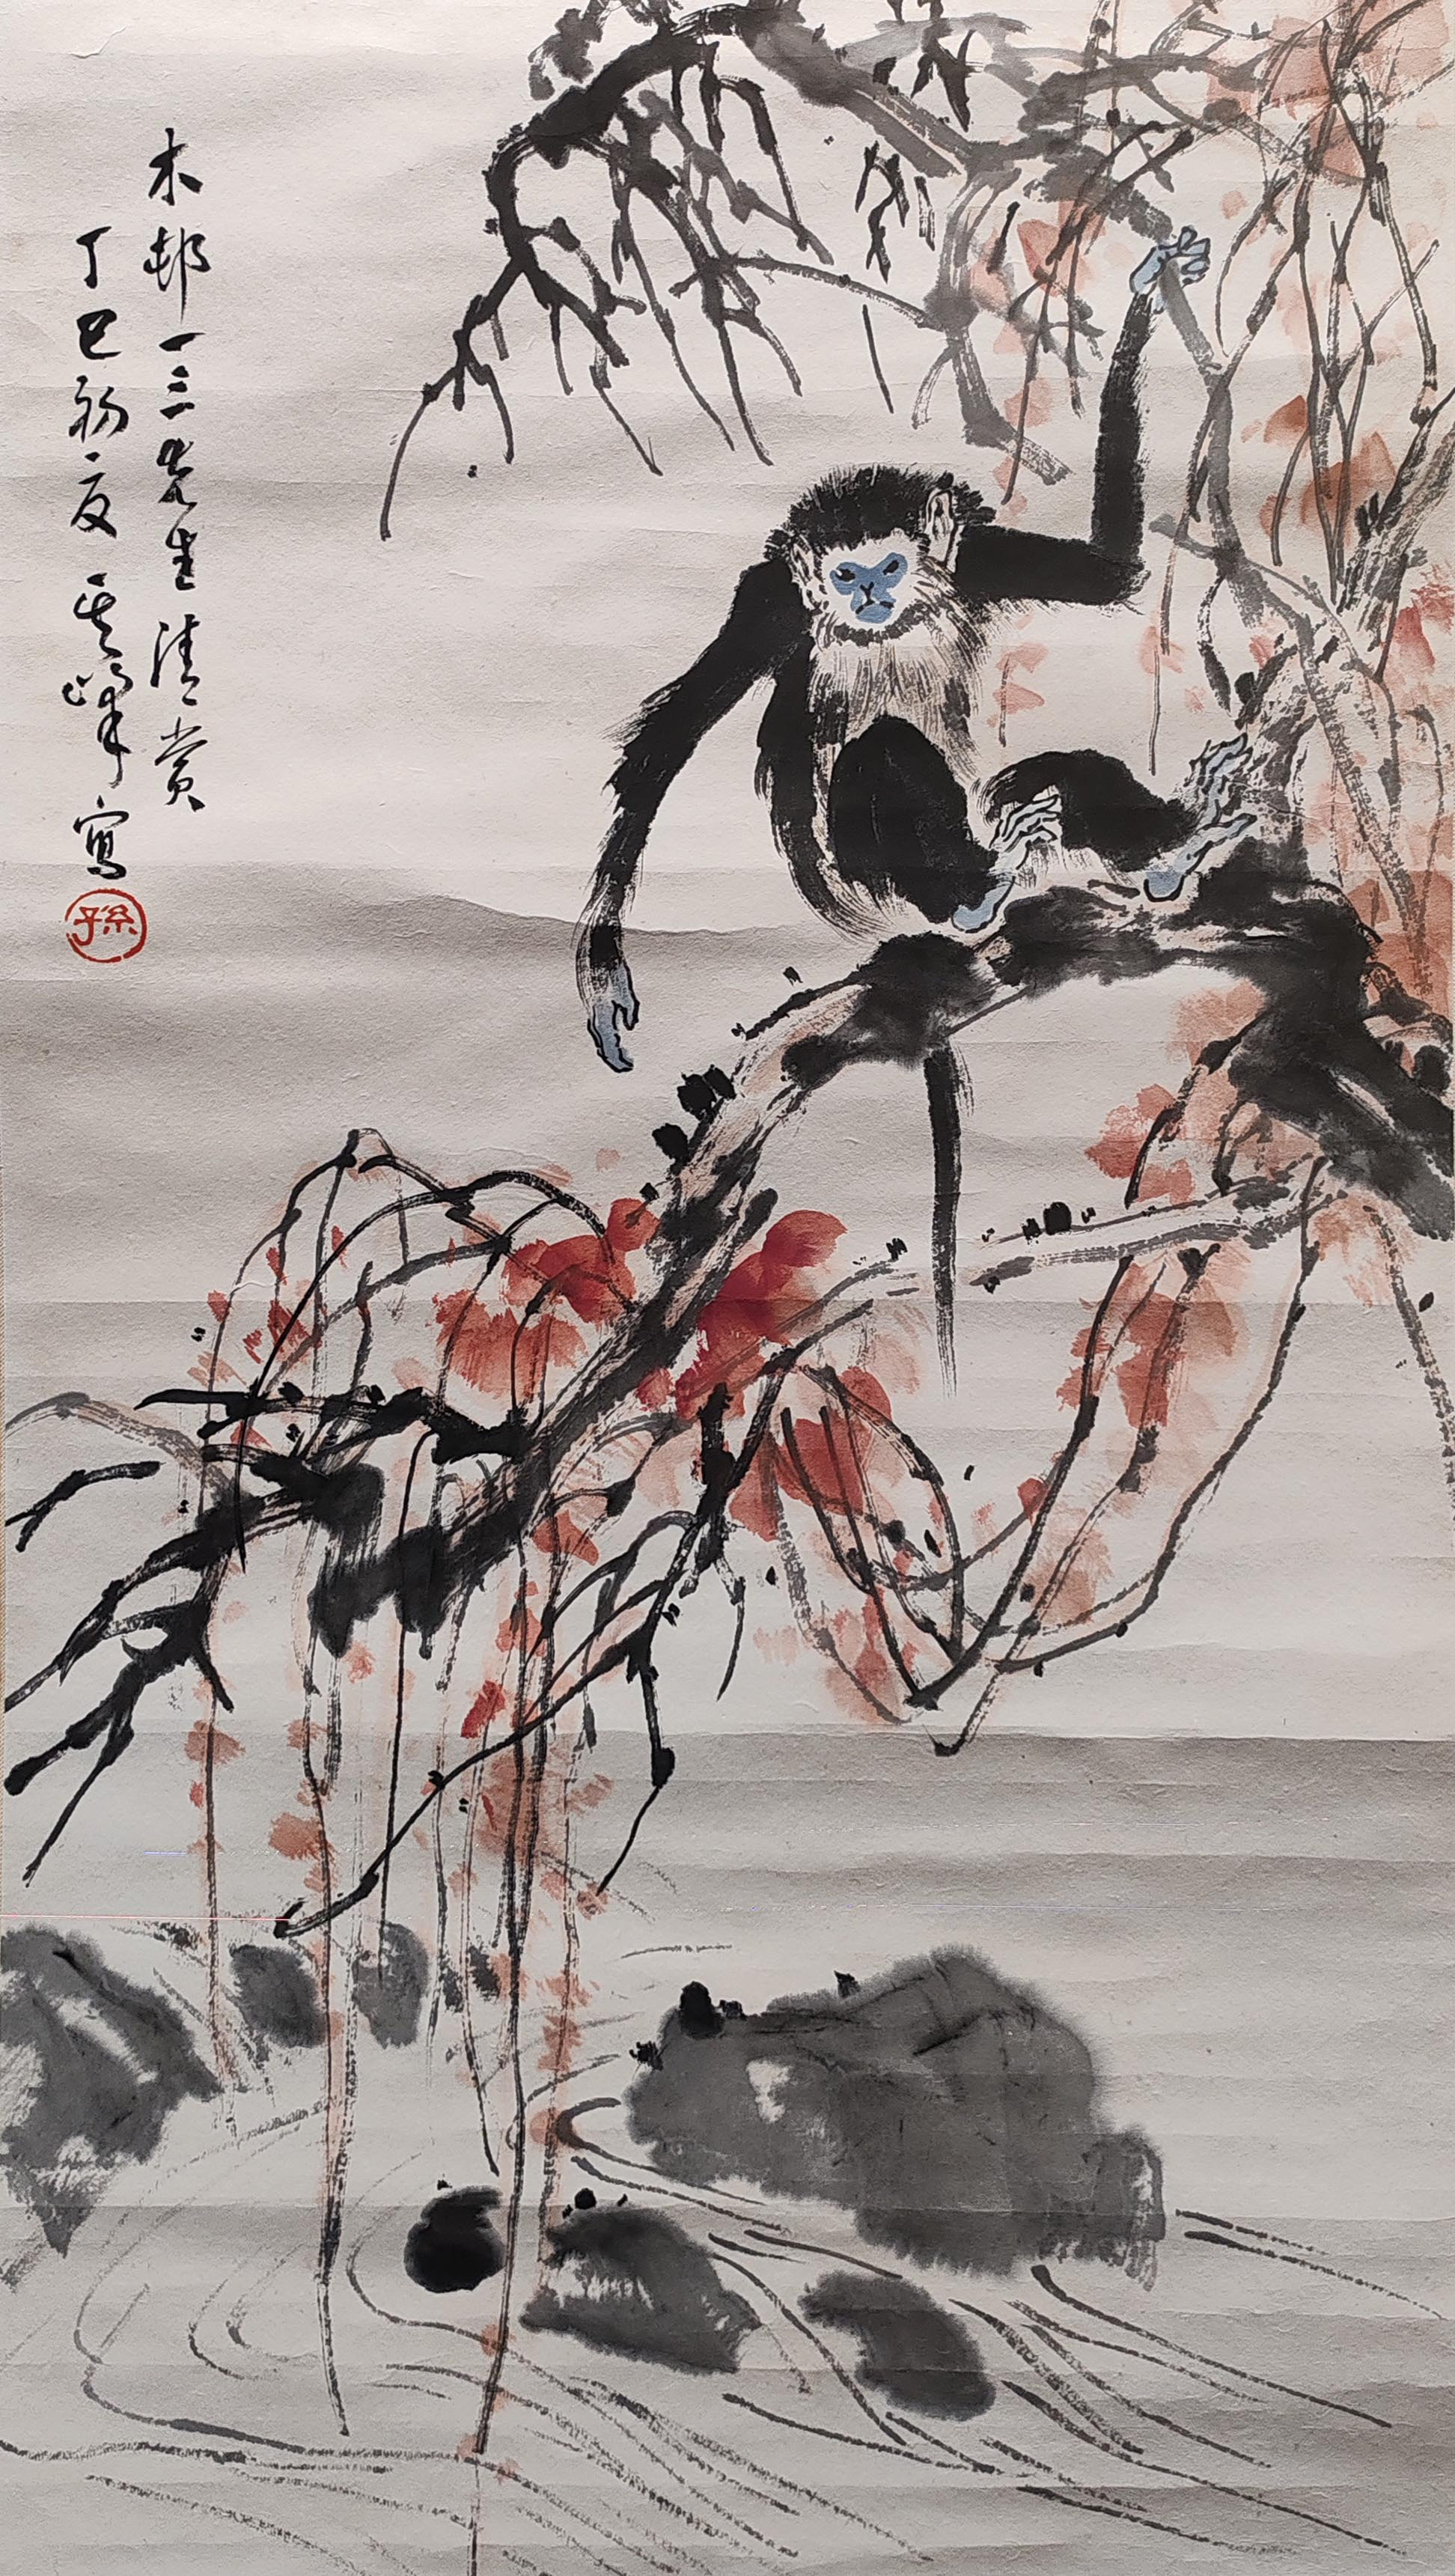 木邨一三先生清赏
丁巳初夏其峰寫
孫